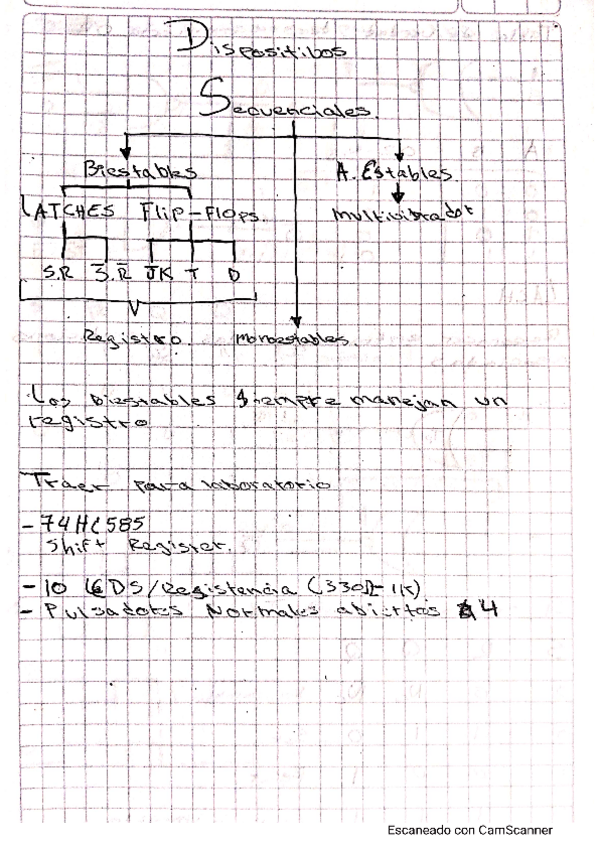 Dispositibos
Secuenciales.
Biestables
A. Estables
LATCHES Flip-Flops.
multivibrador
S.R S̅.R̅ JK T D
Registro.
monoestables.
Los Biestables siempre manejan un
registro
Traer para laboratorio
- 74HC585
Shift Register.
- 10 LEDS/Registencia (330Ω-1K)
- Pulsadores Normales abiertos 4
Escaneado con CamScanner